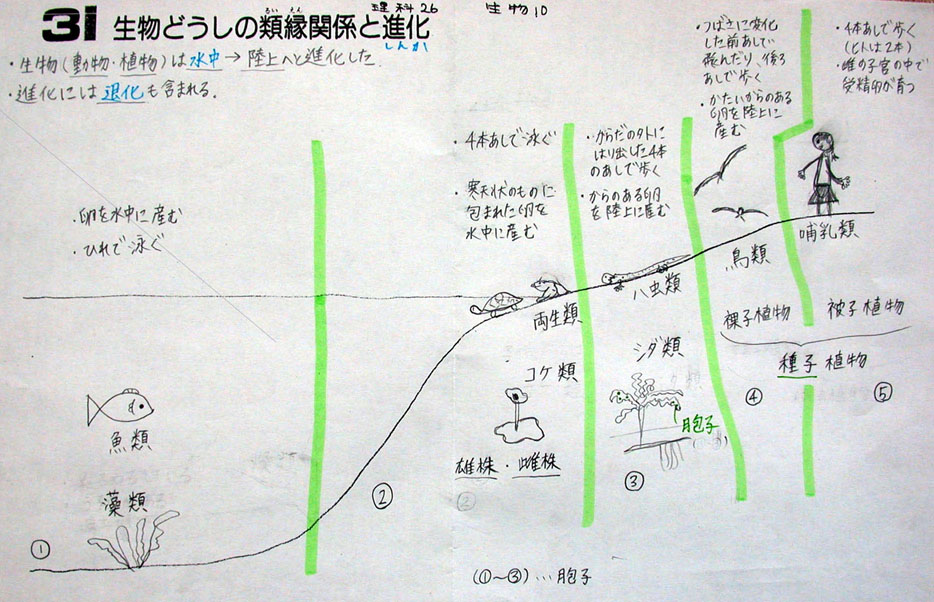 理科26
生物10
31 生物どうしの類縁関係と進化
るい えん
しんか
・生物(動物・植物)は水中→陸上へと進化した.
・進化には退化も含まれる.
・卵を水中に産む
・ひれで泳ぐ
・4本あしで泳ぐ
・寒天状のものに
包まれた卵を
水中に産む
・からだの外に
はり出した4本
のあしで歩く
・からのある卵
を陸上に産む
・つばさに変化
した前あしで
飛んだり、後ろ
あしで歩く
・かたいからのある
卵を陸上に
産む
・4本あしで歩く
(ヒトは2本)
・雌の子宮の中で
受精卵が育つ
魚類
両生類
ハ虫類
鳥類
哺乳類
藻類
コケ類
雄株・雌株
シダ類
胞子
裸子植物
被子植物
種子植物
①
②
②
③
④
⑤
(①〜③)…胞子